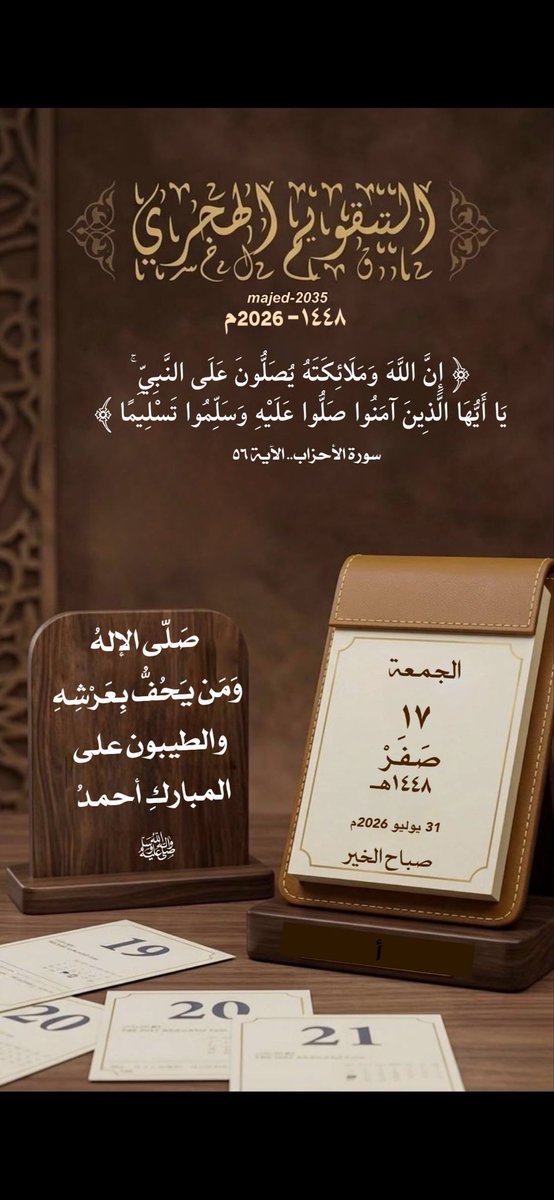 التقويم الهجري
majed-2035
١٤٤٨-2026م
﴿ إِنَّ اللَّهَ وَمَلَائِكَتَهُ يُصَلُّونَ عَلَى النَّبِيِّ ۚ
يَا أَيُّهَا الَّذِينَ آمَنُوا صَلُّوا عَلَيْهِ وَسَلِّمُوا تَسْلِيمًا ﴾
سورة الأحزاب..الآية ٥٦
صَلّى الإلهُ
وَمَن يَحُفُّ بِعَرْشِهِ
والطيبون على
المباركِ أحمدُ
ﷺ
الجمعة
١٧
صَفَرْ
١٤٤٨هـ
31 يوليو 2026م
صباح الخير
أ
19
20
20
21